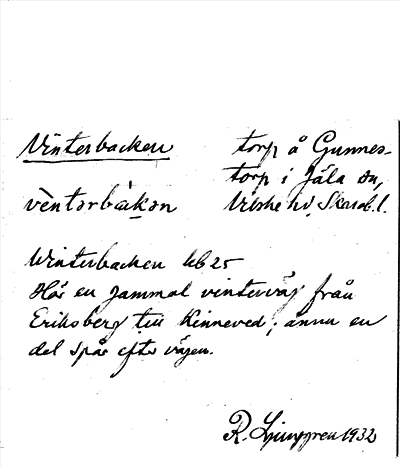 Vinterbacken
torp å Gunnes-
torp i Jäla sn,
Vilske hd, Skarab. l.
vèntərbákən
Winterbacken hb 25
Här en gammal vinterväg från
Eriksberg till Kinneved; ännu en
del spår efter vägen.
R. Ljunggren 1932